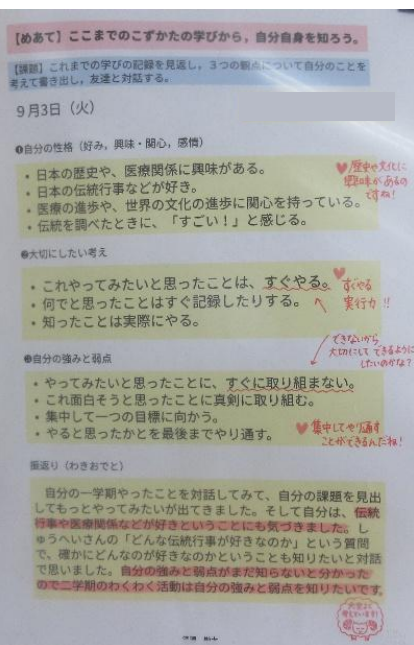 【めあて】ここまでのこずかたの学びから，自分自身を知ろう。
【課題】これまでの学びの記録を見返し，３つの観点について自分のことを
考えて書き出し，友達と対話する。
９月３日（火）
❶自分の性格（好み，興味・関心，感情）
・日本の歴史や、医療関係に興味がある。
・日本の伝統行事などが好き。
・医療の進歩や、世界の文化の進歩に関心を持っている。
・伝統を調べたときに、「すごい！」と感じる。
♥歴史や文化に
興味があるの
ですね！
❷大切にしたい考え
・これやってみたいと思ったことは、すぐやる。
・何でと思ったことはすぐ記録したりする。
・知ったことは実際にやる。
♥すぐやる
実行力!!
できないから
大切にして できるように
したいのかな？
❸自分の強みと弱点
・やってみたいと思ったことに、すぐに取り組まない。
・これ面白そうと思ったことに真剣に取り組む。
・集中して一つの目標に向かう。
・やると思ったかとを最後までやり通す。
♥集中してやり通す
ことができるんだね！
振返り（わきおでと）
自分の一学期やったことを対話してみて、自分の課題を見出
してもっとやってみたいが出てきました。そして自分は、伝統
行事や医療関係などが好きということにも気づきました。し
ゅうへいさんの「どんな伝統行事が好きなのか」という質問
で、確かにどんなのが好きなのかということも知りたいと対話
で思いました。自分の強みと弱点がまだ知らないと分かった
ので二学期のわくわく活動は自分の強みと弱点を知りたいです。